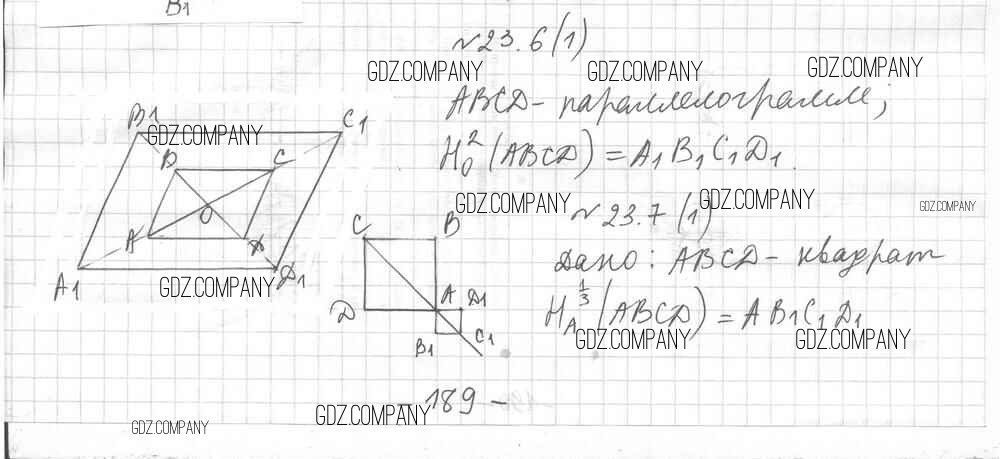 B1
№23.6(1)
GDZ.COMPANY GDZ.COMPANY GDZ.COMPANY
ABCD - параллелограмм;
H₀²(ABCD) = A1B1C1D1.
B1 C1
GDZ.COMPANY
B C
O
A D
A1 D1
GDZ.COMPANY
GDZ.COMPANY GDZ.COMPANY GDZ.COMPANY
№23.7(1)
Дано: ABCD - квадрат
H_A^{1/3}(ABCD) = AB1C1D1
GDZ.COMPANY GDZ.COMPANY
C B
D A D1
B1 C1
- 189 -
GDZ.COMPANY
GDZ.COMPANY